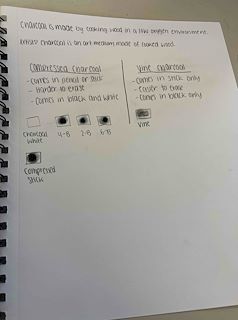 Charcoal is made by cooking wood in a low oxygen environment.
Artists' charcoal is an art medium made of burned wood.
Compressed Charcoal
- comes in pencil or stick
- harder to erase
- comes in black and white
Vine Charcoal
- comes in stick only
- easier to erase
- comes in black only
Charcoal White
4-B
2-B
6-B
Vine
Compressed Stick